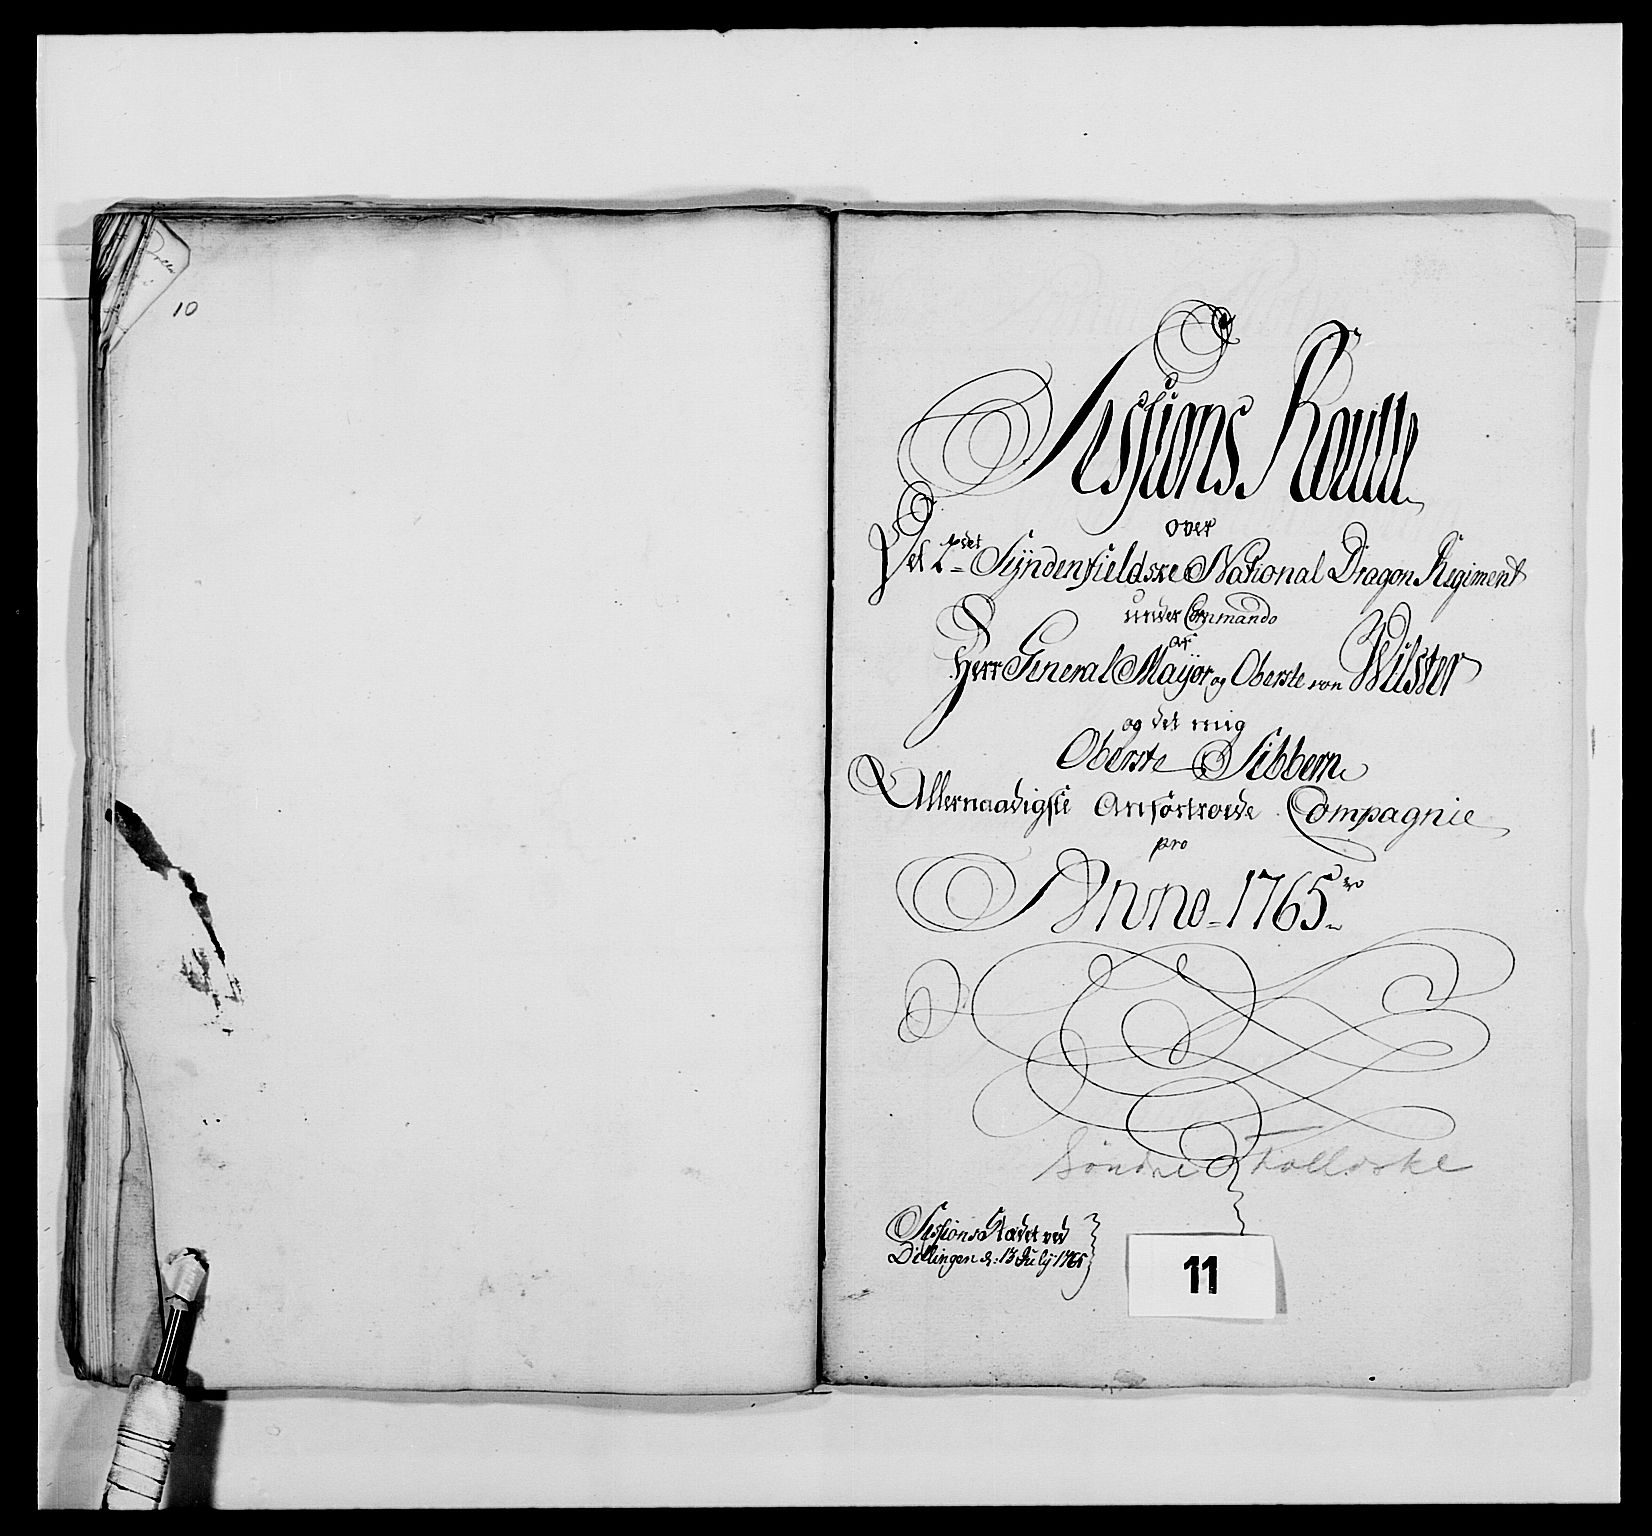 10
Sessions Roulle
over
Det 2det Syndenfieldske National Dragon Regiment
under Commando
af
Herr General Mayor og Oberste von Wilster
og det mig
Oberste Sibbern
Allernaadigste Anfortroede Compagnie
pro
Anno 1765
Søndre Folloske
Sessions Stædet ved
Dillingen d: 13 July 1765
11